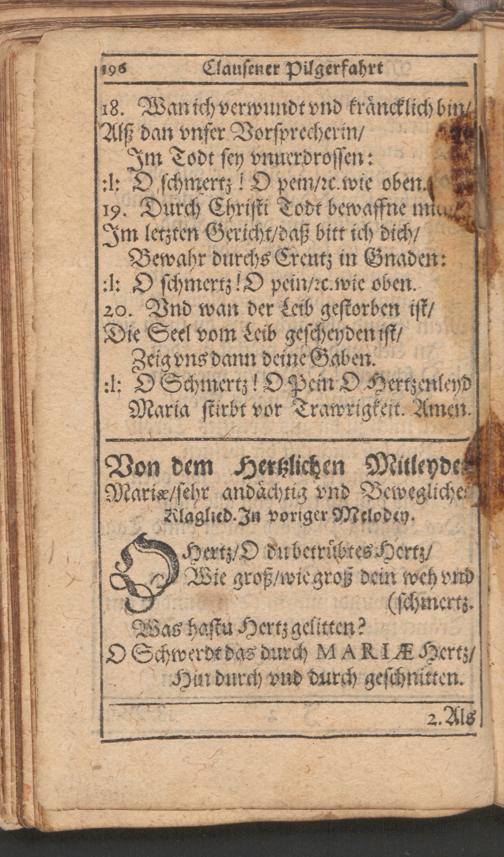 196 Clausener Pilgerfahrt
18. Wan ich verwundt vnd kräncklich bin/
Alß dan vnser Vorsprecherin/
Im Todt sey vnuerdrossen:
:l: O schmertz! O pein/ꝛc. wie oben.
19. Durch Christi Todt bewaffne
Im letzten Gericht/daß bitt ich dich/
Bewahr durchs Creutz in Gnaden:
:l: O schmertz! O pein/ꝛc. wie oben.
20. Vnd wan der Leib gestorben ist/
Die Seel vom Leib gescheyden ist/
Zeig vns dann deine Gaben.
:l: O Schmertz! O Pein O Hertzenleyd
Maria stirbt vor Trawrigkeit. Amen.
Von dem Hertzlichen
Mariæ/sehr andächtig vnd
Klaglied. In voriger Melodey.
O Hertz/O du betrübtes Hertz/
Wie groß/wie groß dein weh vnd
(schmertz.
Was hastu Hertz gelitten?
O Schwerdt das durch MARIÆ Hertz/
Hin durch vnd durch geschnitten.
2. Als